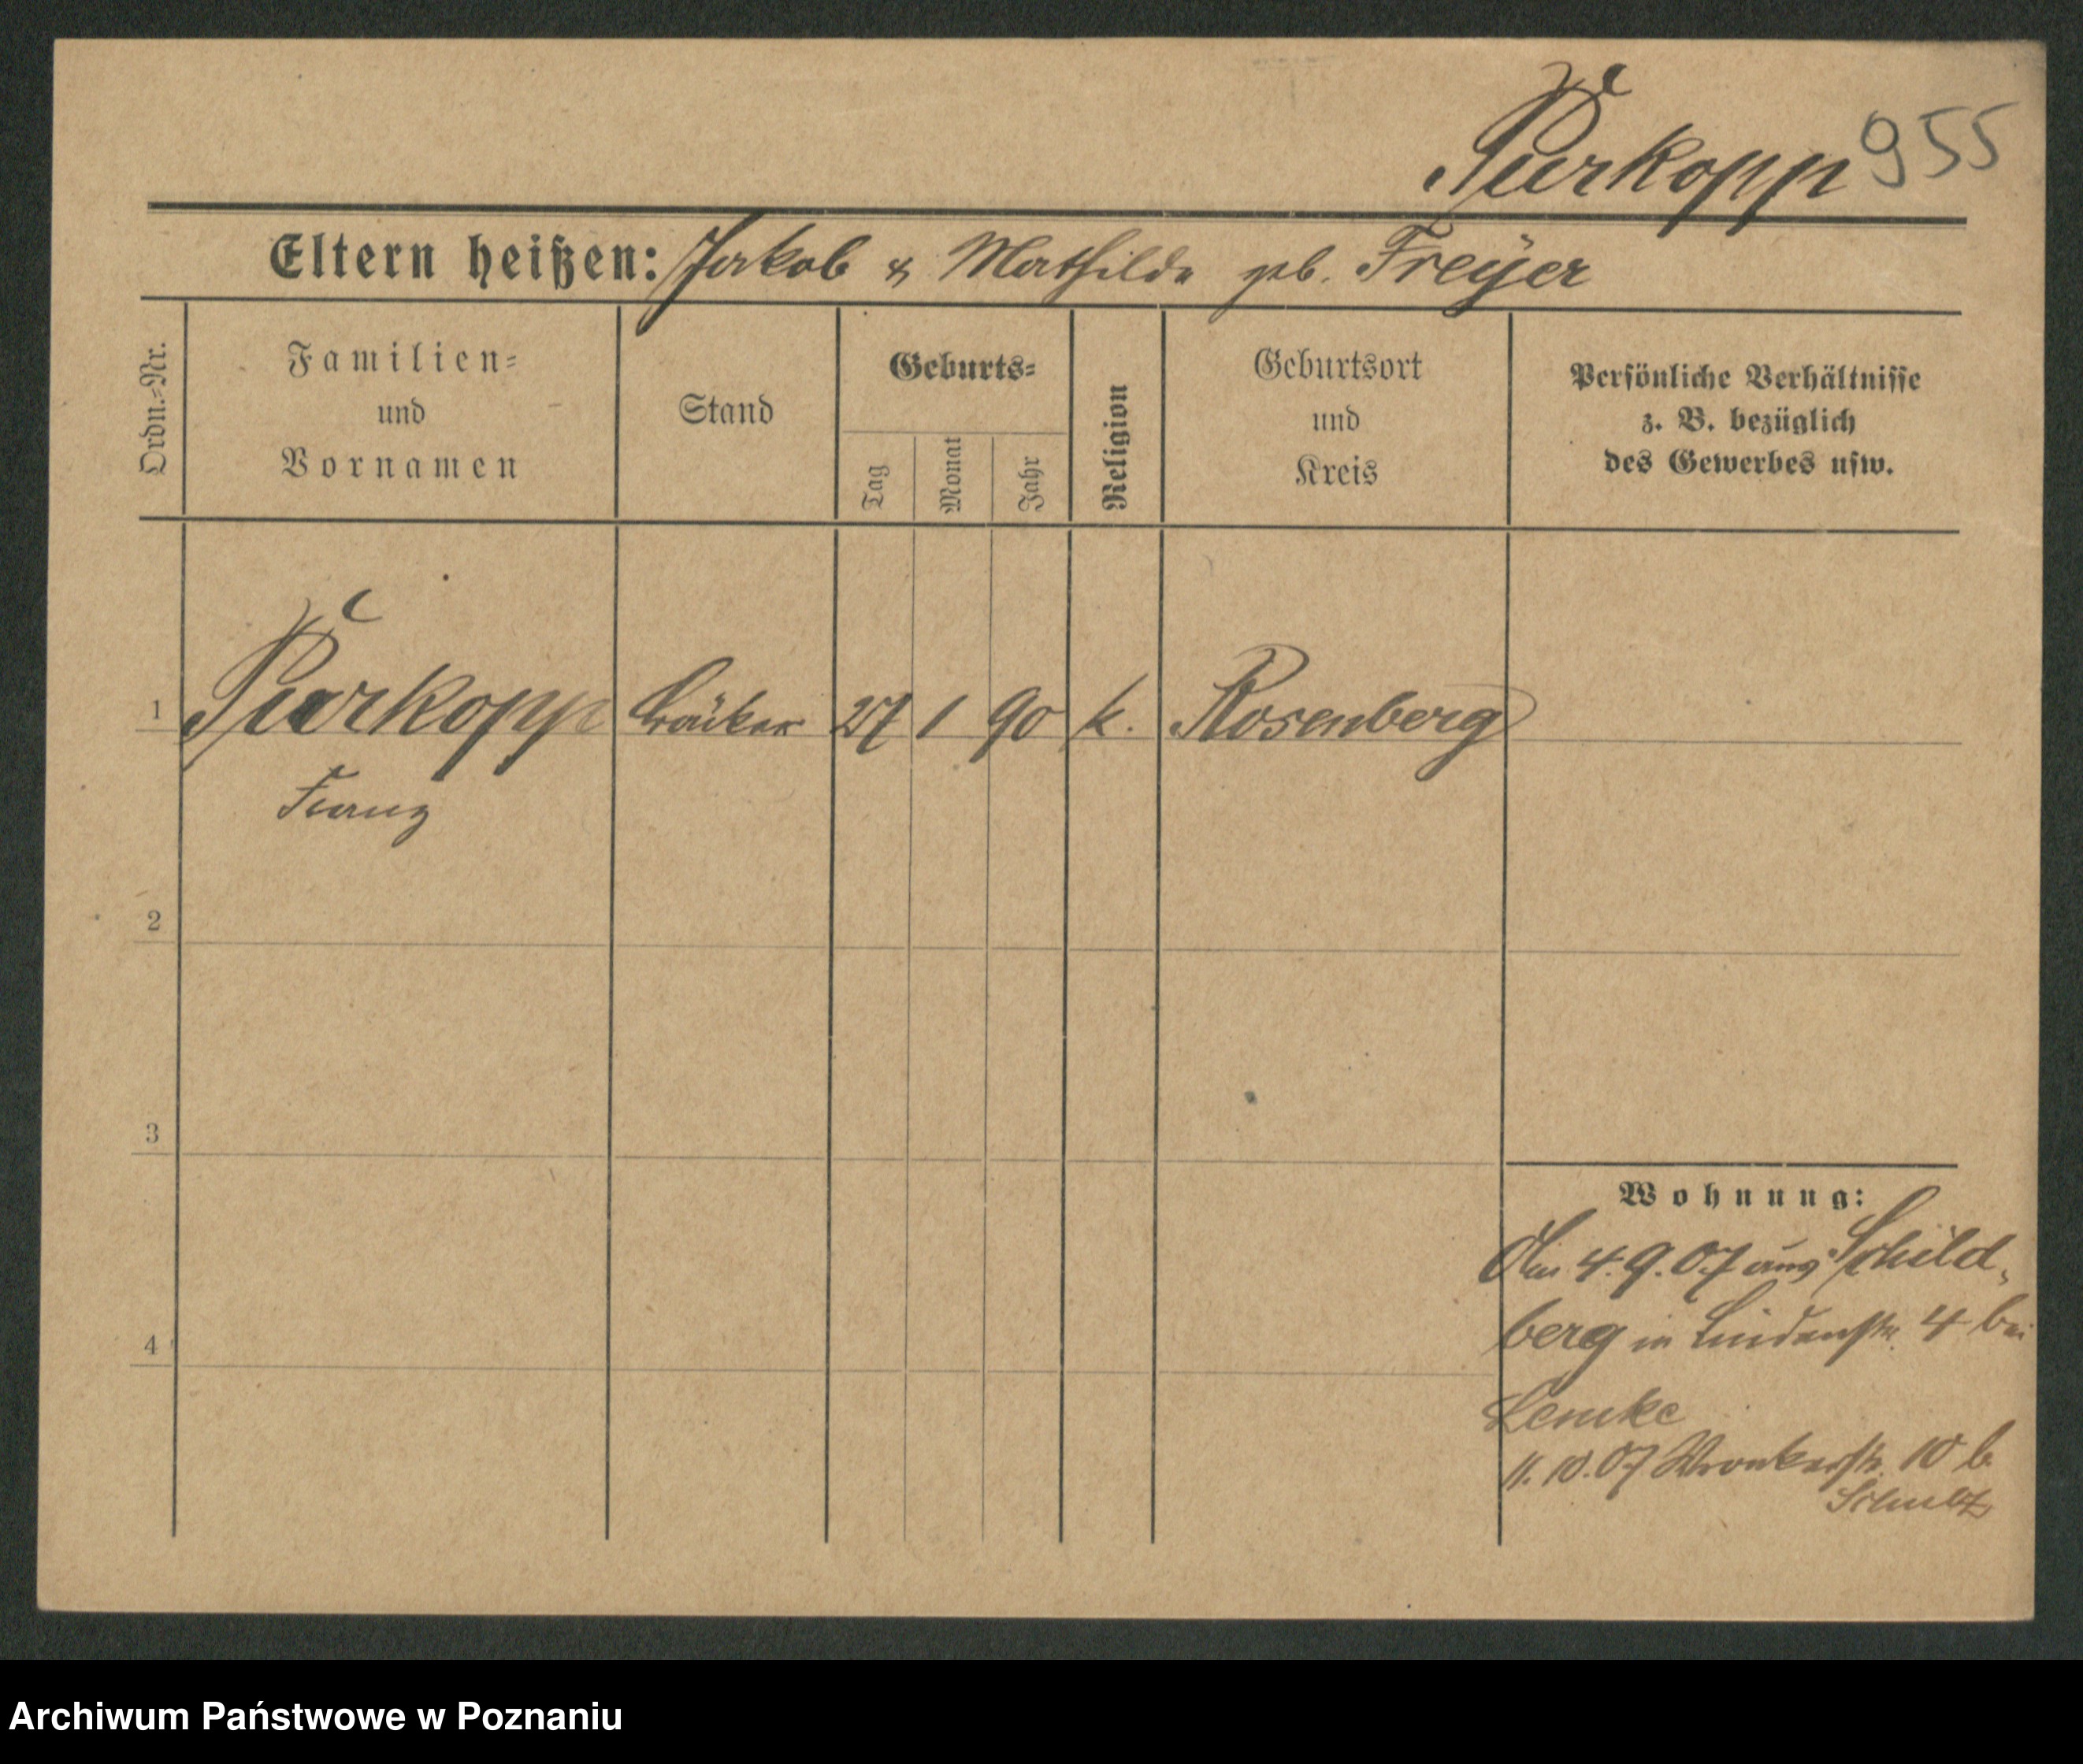 Purkopp 955
Eltern heißen: Jakob & Mathilde geb. Freÿer
Ordn.-Nr.
Familien- und Vornamen
Stand
Geburts-
Tag
Monat
Jahr
Religion
Geburtsort und Kreis
Persönliche Verhältnisse
z. B. bezüglich
des Gewerbes usw.
1 Purkopp 27 1 90 k. Rosenberg
Franz
2
3
4
Wohnung:
Am 4.9.07 aus Schild-
berg in Lindenstr. 4 bei
Lemke
11.10.07 Wronkerstr. 10 b.
Schultz
Archiwum Państwowe w Poznaniu